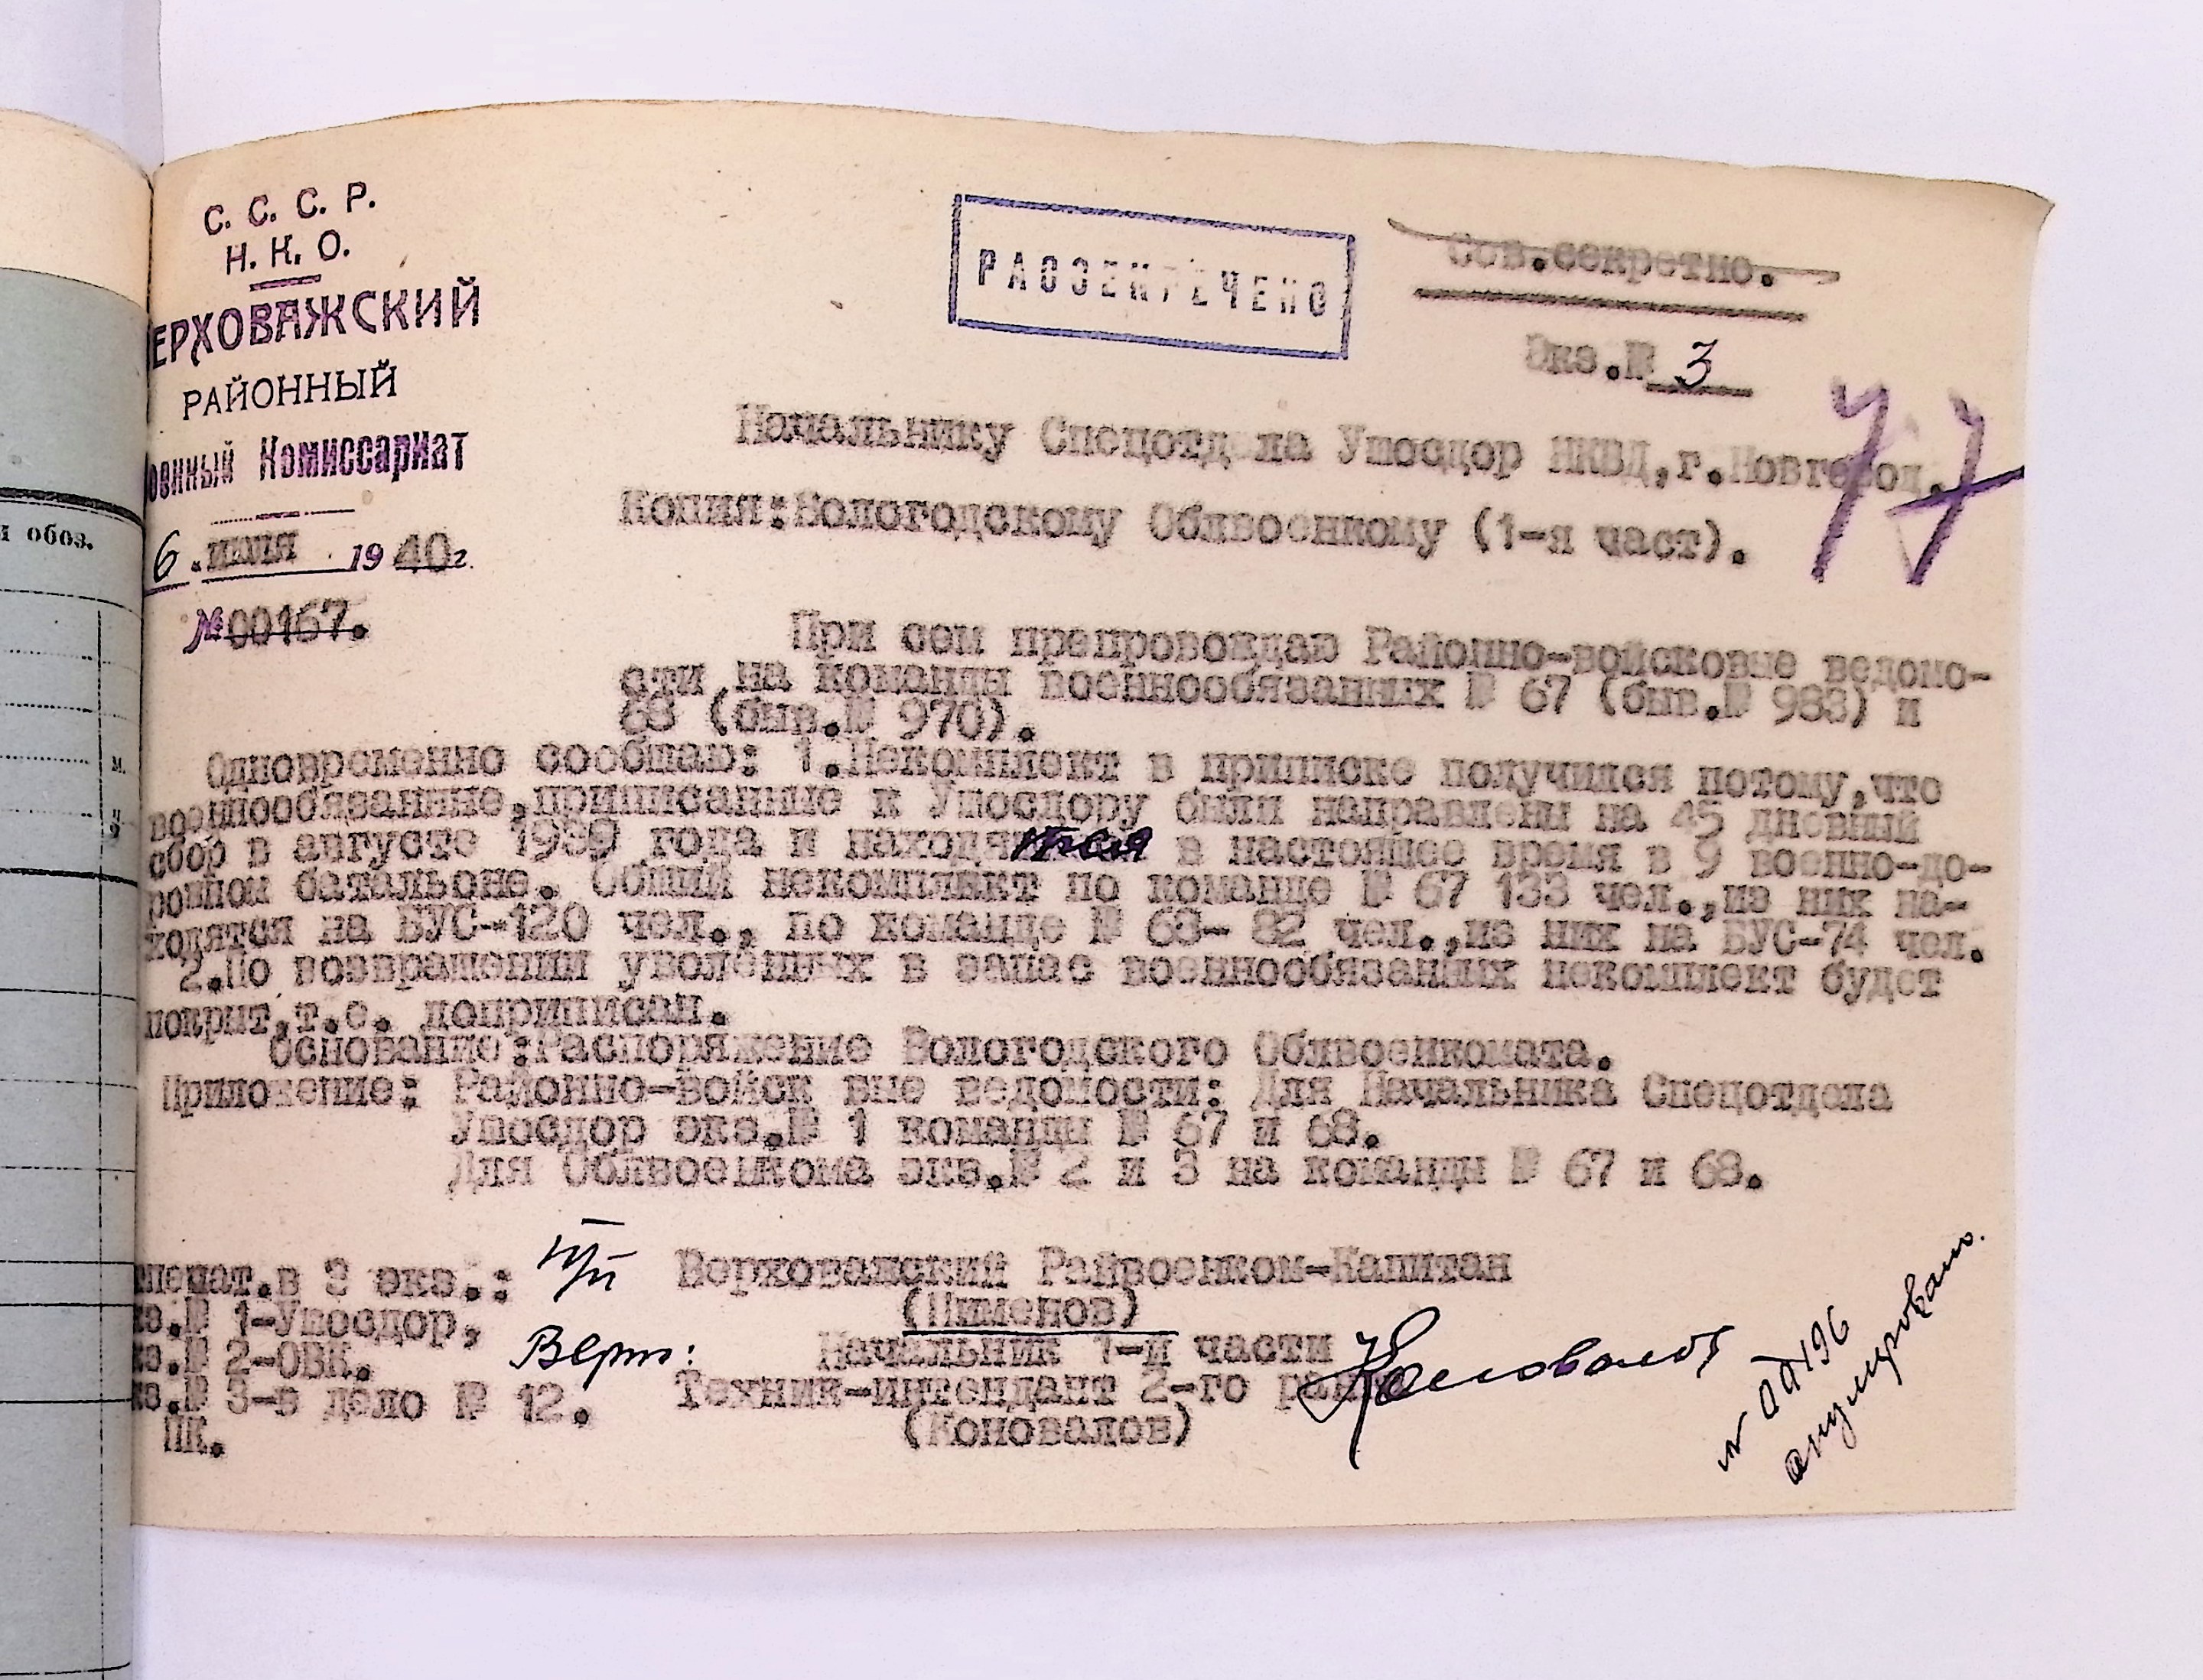 С. С. С. Р.
Н. К. О.
ЕРХОВАЖСКИЙ
РАЙОННЫЙ
оенный Комиссариат
6 " июля 1940г.
№00167.
РАССЕКРЕЧЕНО
Сов.секретно.
Экз.№ 3
77
Начальнику Спецотд ла Упосдор НКВД,г.Новгород.
Копия:Вологодскому Облвоенкому (1-я част).
При сем препровождаю Районно-войсковые ведомо-
сти на команды военнообязанных № 67 (быв.№ 983) и
68 (быв.№ 970).
Одновременно сообщаю: 1.Некомплект в приписке получился потому,что
военнообязанные,приписанные к Упосдору были направлены на 45 дневный
сбор в августе 1939 года и находятся в настоящее время в 9 военно-до-
рожном батальоне. Общий некомплект по команде № 67 133 чел.,из них на-
ходятся на БУС-120 чел., по команде № 68- 82 чел.,из них на БУС-74 чел.
2.По возвращении уволенных в запас военнообязанных некомплект будет
покрыт,т.е. доприписан.
Основание:Распоряжение Вологодского Облвоенкомата.
Приложение: Районно-войск вые ведомости: Для Начальника Спецотдела
Упосдор экз.№ 1 команды № 67 и 68.
Для Облвоенкома экз.№ 2 и 3 на команды № 67 и 68.
печат.в 3 экз.: п/п Верховажский Райвоенком-Капитан
кз.№ 1-Упосдор, (Пименов)
кз.№ 2-ОВК. Верно: Начальник 1-й части
кз.№ 3-в дело № 12. Техник-интендант 2-го ранга Коновалов
ПК. (Коновалов)
№ 00196
анулировано.